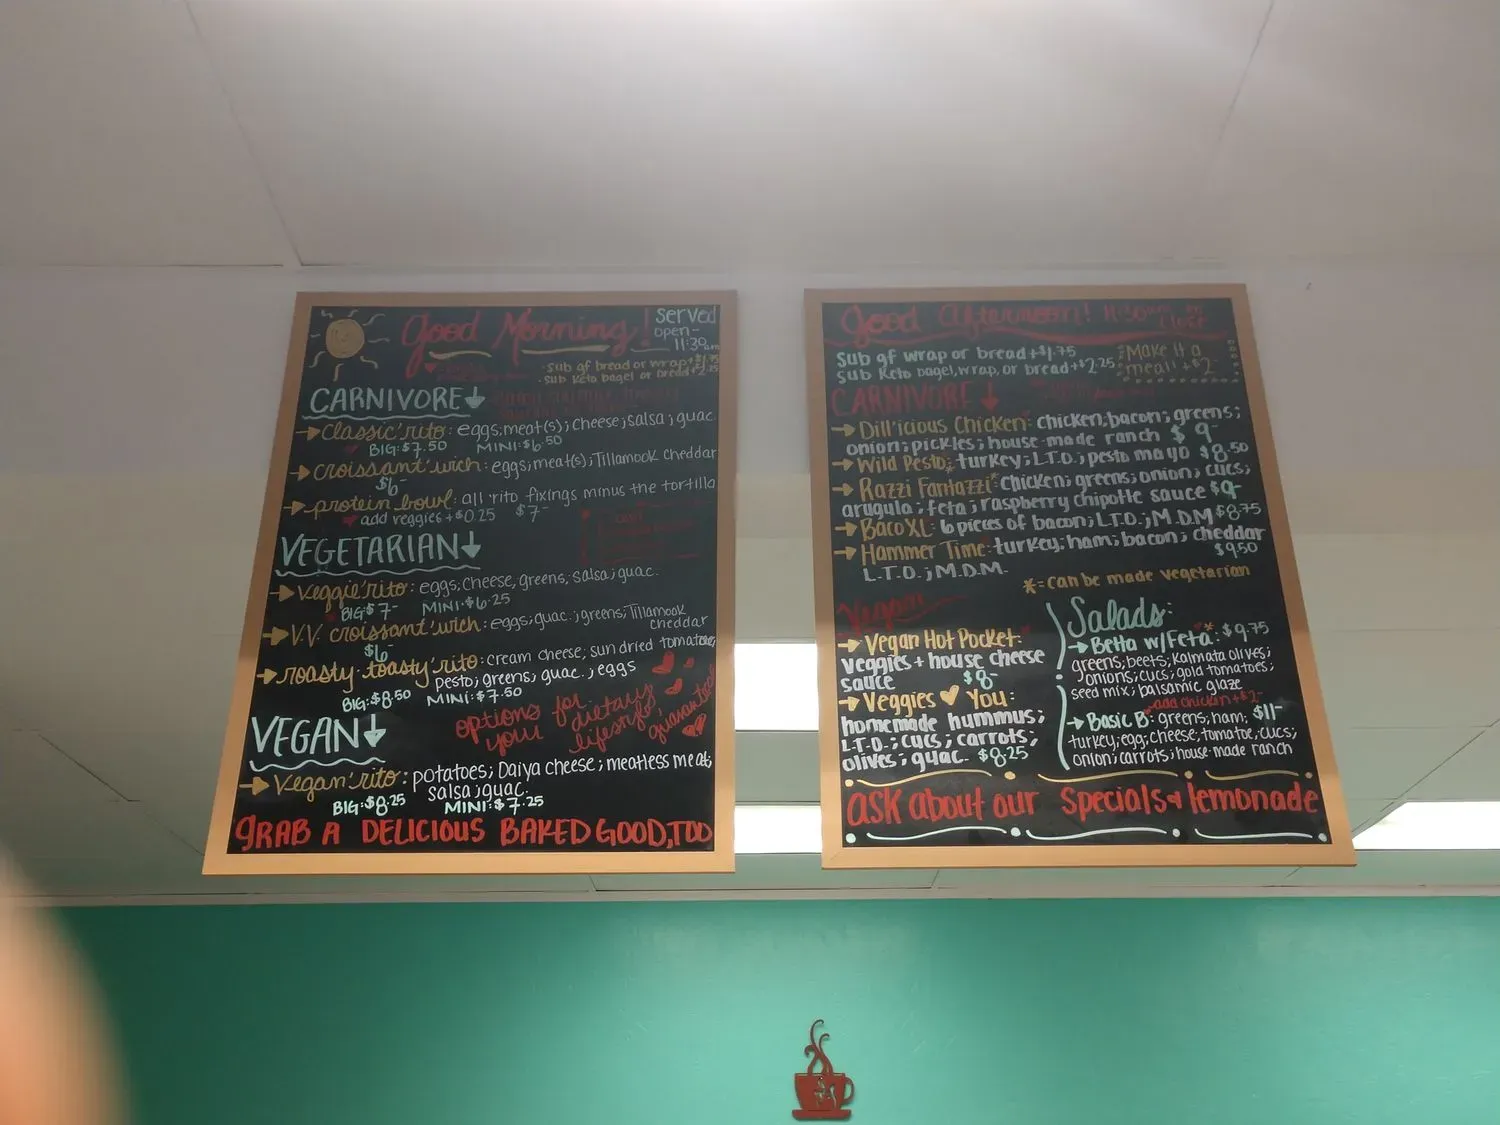 Good Morning!
Served
open-
11:30am
·Sub gf bread or wrap+$1.75
·Sub Keto bagel or bread+$2.25
CARNIVORE
Classic'rito: eggs;meat(s);cheese;salsa;guac
BIG:$7.50 MINI:$6.50
croissant'wich: eggs;meat(s);Tillamook cheddar
$6-
protein bowl: all 'rito fixings minus the tortilla
add veggies +$0.25 $7-
VEGETARIAN
Veggie'rito: eggs;cheese,greens;salsa;guac.
BIG:$7- MINI:$6.25
V.V. croissant'wich: eggs;guac.;greens;Tillamook
cheddar
$6-
roasty-toasty'rito: cream cheese; sun dried tomatoes;
pesto; greens; guac.; eggs
BIG:$8.50 MINI:$7.50
options for
your dietary
lifestyle,
guaranteed
VEGAN
Vegan'rito: potatoes; Daiya cheese; meatless meat;
salsa;guac.
BIG:$8.25 MINI:$7.25
GRAB A DELICIOUS BAKED GOOD,TOO
Good Afternoon! 11:30am to
close
Sub gf wrap or bread+$1.75
Sub Keto bagel,wrap,or bread+$2.25
Make it a
meal! +$2-
CARNIVORE
Dill'icious Chicken: chicken;bacon; greens;
onion;pickles;house-made ranch $9-
Wild Pesto*: turkey; L.T.O.; pesto mayo $8.50
Razzi Fantazzi*: chicken; greens; onion; cucs;
arugula; feta; raspberry chipotle sauce $9-
Baco XL: 6 pieces of bacon; L.T.O.; M.D.M $8.75
Hammer Time: turkey; ham; bacon; cheddar
$9.50
L.T.O.; M.D.M.
*=can be made vegetarian
Vegan
Vegan Hot Pocket:
veggies + house cheese
sauce $8-
Veggies ♥ You:
homemade hummus;
L.T.O.; cucs; carrots;
olives; guac. $8.25
Salads:
Betta w/Feta:* $9.75
greens; beets; Kalmata olives;
onions; cucs; gold tomatoes;
seed mix; balsamic glaze
add chicken +$2-
Basic B: greens; ham; $11-
turkey;egg;cheese;tomatoe;cucs;
onion;carrots;house-made ranch
ask about our specials & lemonade